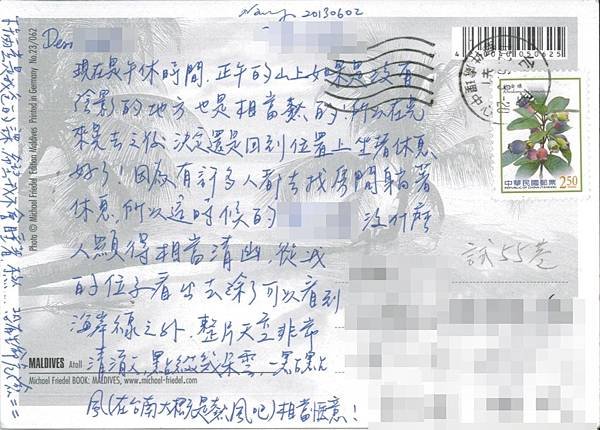 Nancy 20130602
Dear
現在是午休時間,正午的山上如果是沒有
陰影的地方也是相當熱的,所以在
來走去之後,決定還是回到位置上坐著休息
好了!因為有許多人都去找房間躺著
休息,所以這時候的 沒什麼
人顯得相當清幽,從我
的位子看出去除了可以看到
海岸線之外,整片天空非常
清澈,點綴幾朵雲,一點點
風(在台南大概是熱風吧)相當愜意!
試55巷
中華民國郵票
2.50
4000400050625
MALDIVES Atoll
Michael Friedel BOOK: MALDIVES, www.michael-friedel.com
Photo © Michael Friedel Edition Maldives Printed in Germany No.23/062